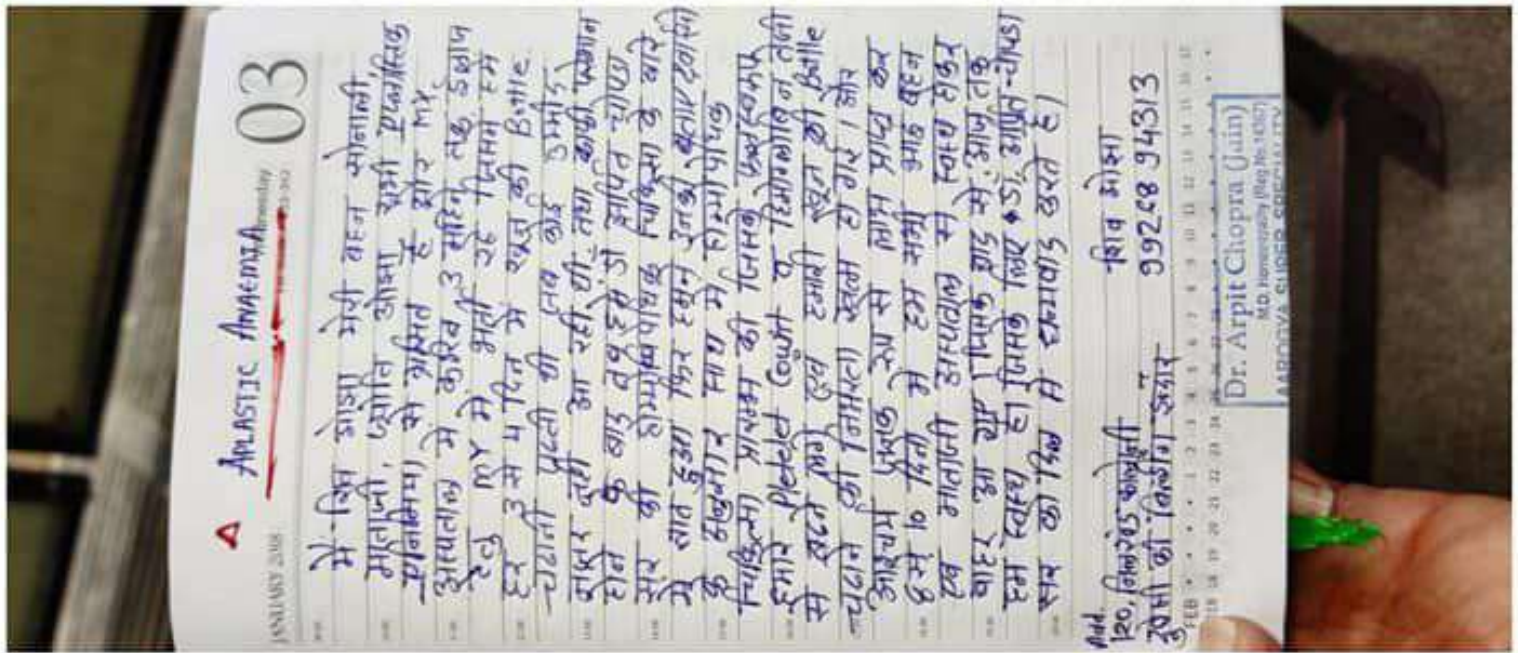 APLASTIC ANAEMIA
JANUARY 2018
03
मैं शिव ओझा मेरी बहन सोनाली
माताजी, ज्योति ओझा सभी एप्लास्टिक
एनिमिया से ग्रसित है और MY.
अस्पताल में करीब 3 महिने तक ईलाज
हेतु MY में भर्ती रहे जिसमे हमे
हर 3 से 4 दिन में खून की Bottle.
चढानी पडती थी तब कोई उम्मीद
नजर नही आ रही थी तथा काफी परेशान
होने के बाद हमे डॉ अर्पित चोपडा
सर की होम्योपेथिक चिकित्सा के बारे
में ज्ञात हुआ फिर हमने उनकी बताए
के अनुसार साथ में होम्योपेथिक
चिकित्सा प्रारम्भ की जिसके फलस्वरूप
हमारे Pletelet Count व हिमोग्लोबिन तेजी
से बढने लगे एवं हमारी खून की Bottle
चढाने की निर्भरता खत्म हो गई। और
आश्चर्य जनक रूप से लाभ प्राप्त कर
10 दिनो मे हम सभी भाई बहन
एवं माताजी अस्पताल से स्वस्थ होकर
बाहर आ गए जिसके बाद से आज तक
हम स्वस्थ है। जिसके लिए डॉ. अर्पित चोपडा
सर का दिल से धन्यवाद करते है।
Add.
120, कॉलोनी
शिव ओझा
99268 94313
FEB
Dr. Arpit Chopra (Jain)
M.D. Homoeopathy (Reg.No.14367)
AAROGYA SUPER SPECIALITY